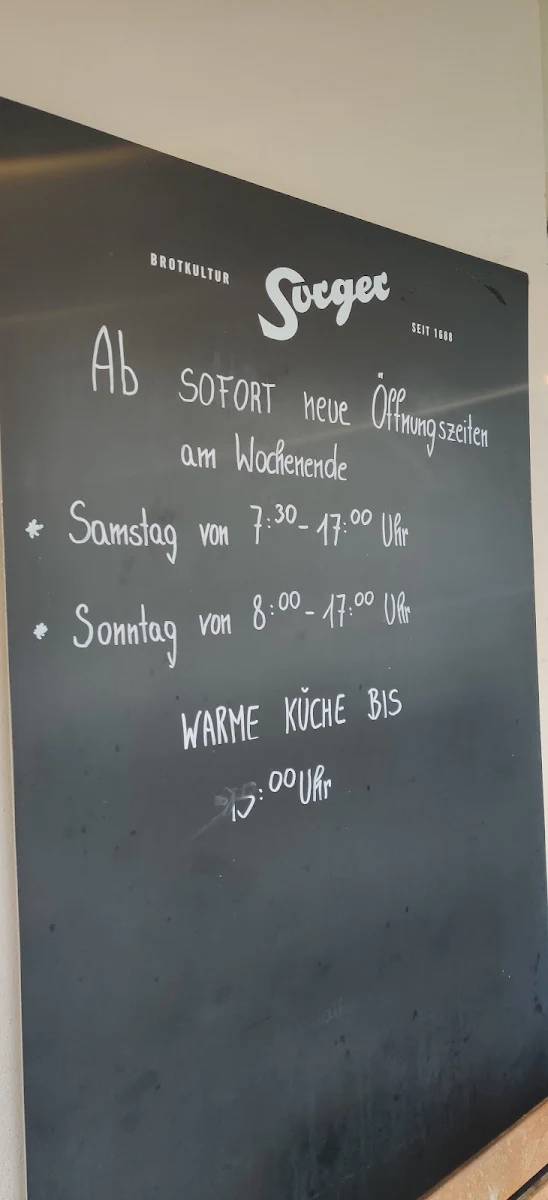 BROTKULTUR
Sorger
SEIT 1688
Ab SOFORT neue Öffnungszeiten
am Wochenende
* Samstag von 7:30 - 17:00 Uhr
* Sonntag von 8:00 - 17:00 Uhr
WARME KÜCHE BIS
15:00 Uhr